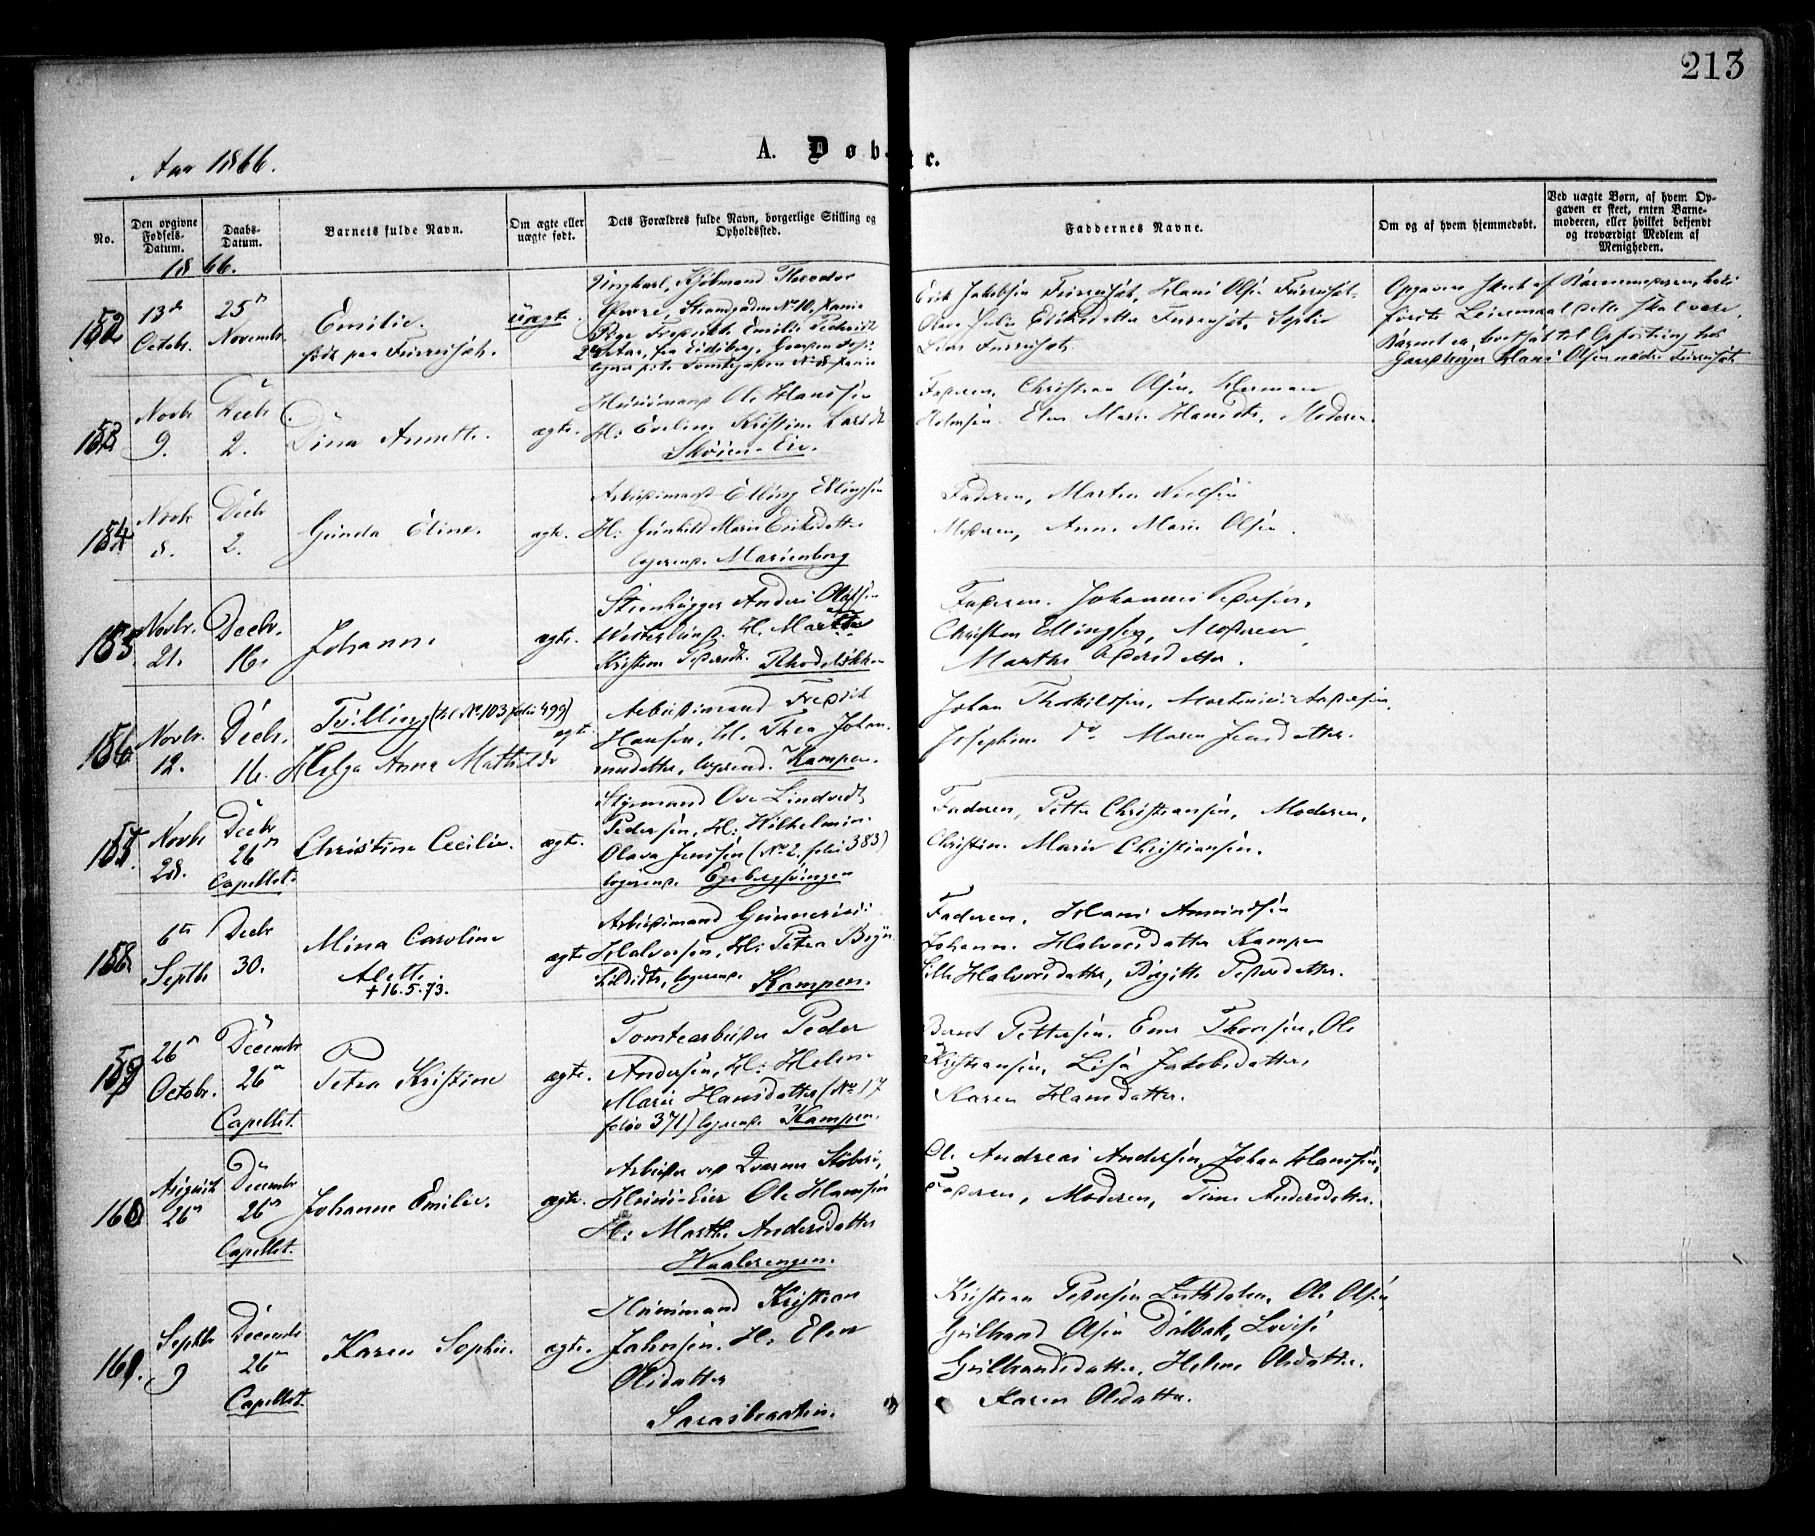 213
Aar 1866.
A. Døbte.
No.
Den opgivne Fødsels-Datum.
Daabs-Datum.
Barnets fulde Navn.
Om ægte eller uægte født.
Dets Forældres fulde Navn, borgerlige Stilling og Opholdssted.
Faddernes Navne.
Om og af hvem hjemmedøbt.
Ved uægte Børn, af hvem Opgaven er skeet, enten Barnemoderen, eller hvilket bekjendt og troværdigt Medlem af Menigheden.
1866.
152
13de Octobr.
25n Novembr.
Emilie.
født paa
uægte.
Ungkarl, Kjøbmand Theodor
No 10,
Pige Fredrikke Emilie
Erik Jakobsen Hans Olsen
Olava Julie Eriksdatter Sophie
Opgaven skeet af Barnemoderen,
første Leiermaal
Barnet er bortsat til Opfostring hos
Hans Olsen nedre
153
Novbr 9.
Decbr 2.
Dina Annette.
ægte.
Huusmand Ole Hanssen
H: Eveline Kristine Larsdt
Skøien-Eie.
Faderen, Christian Olsen, Herman
Holmsen. Elen Marie Hansdtr, Moderen.
154
Novbr 8.
Decbr 2.
Gunda Eline.
ægte.
Arbeidsmand Elling Ellingsen
H: Gunhild Marie Eriksdatter
logerend. Marienborg
Faderen, Marten Nielsen
Moderen, Anne Marie Olsen.
155
Novbr. 21.
Decbr. 16.
Johanne
ægte.
Steenhugger Anders Olafsen
Westerlund. H. Marthe
Kristine Pedersdt. Rhodeløkken
Faderen. Johannes Pedersen,
Christen Ellingsen, Moderen
Marthe Pedersdatter.
156
Novbr. 12.
Decbr. 16.
Tvilling (til No 103 folio 499)
Helga Anna Mathilde
ægte
Arbeidsmand Fredrik
Hansen, H. Thea Johan-
nesdatter, logerend. Kampen.
Johan Thorkildsen, Martinius Andersen,
Josephine do Maren Jensdatter.
157.
Novbr 28.
Decbr 26n
Capellet.
Christine Cecilie.
ægte.
Styrmand Ove Lindvedt
Pedersen, H: Wilhelmine
Olava Jenssen (No 2, folio 383)
logerend. Egebergsvingen
Faderen, Petter Christiansen, Moderen,
Christine Marie Christiansen.
158.
6te Septbr
Decbr 30.
Mina Caroline
Alette.
+ 16.5.73.
ægte
Arbeidsmand Gunnerius
Halvorsen, H: Petra Bryn-
ildsdtr, logerend. Kampen.
Faderen, Hans Amundsen
Johanne Halvorsdatter Kampen
Halvorsdatter, Birgitte Pedersdatter.
159
26n Octobr.
Decembr 26n
Capellet.
Petra Kristine
ægte.
Tomtearbeider Peder
Andersen, H: Helene
Marie Hansdatter (No 17
folio 371) logerend Kampen.
Bernt Pettersen. Thoresen, Ole
Kristiansen, Lisa Jakobsdatter,
Karen Hansdatter.
160
August 26n
Decembr 26n
Capellet.
Johanne Emilie.
ægte.
Arbeider ved
Ole Hansen
H: Marthe Andersdatter
Waalerengen.
Ole Andreas Andersen, Johan Hanssen,
Faderen, Moderen, Andersdatter.
161.
Septbr 9
Decembr 26n
Capellet.
Karen Sophie.
ægte.
Huusmand Kristian
Johnsen. H: Elen
Olsdatter
Sarasbraaten.
Kristian Pedersen Ole Olsen
Gulbrand Olsen Dalbak, Lovise
Gulbrandsdatter, Helene Olsdatter.
Karen Olsdatter.